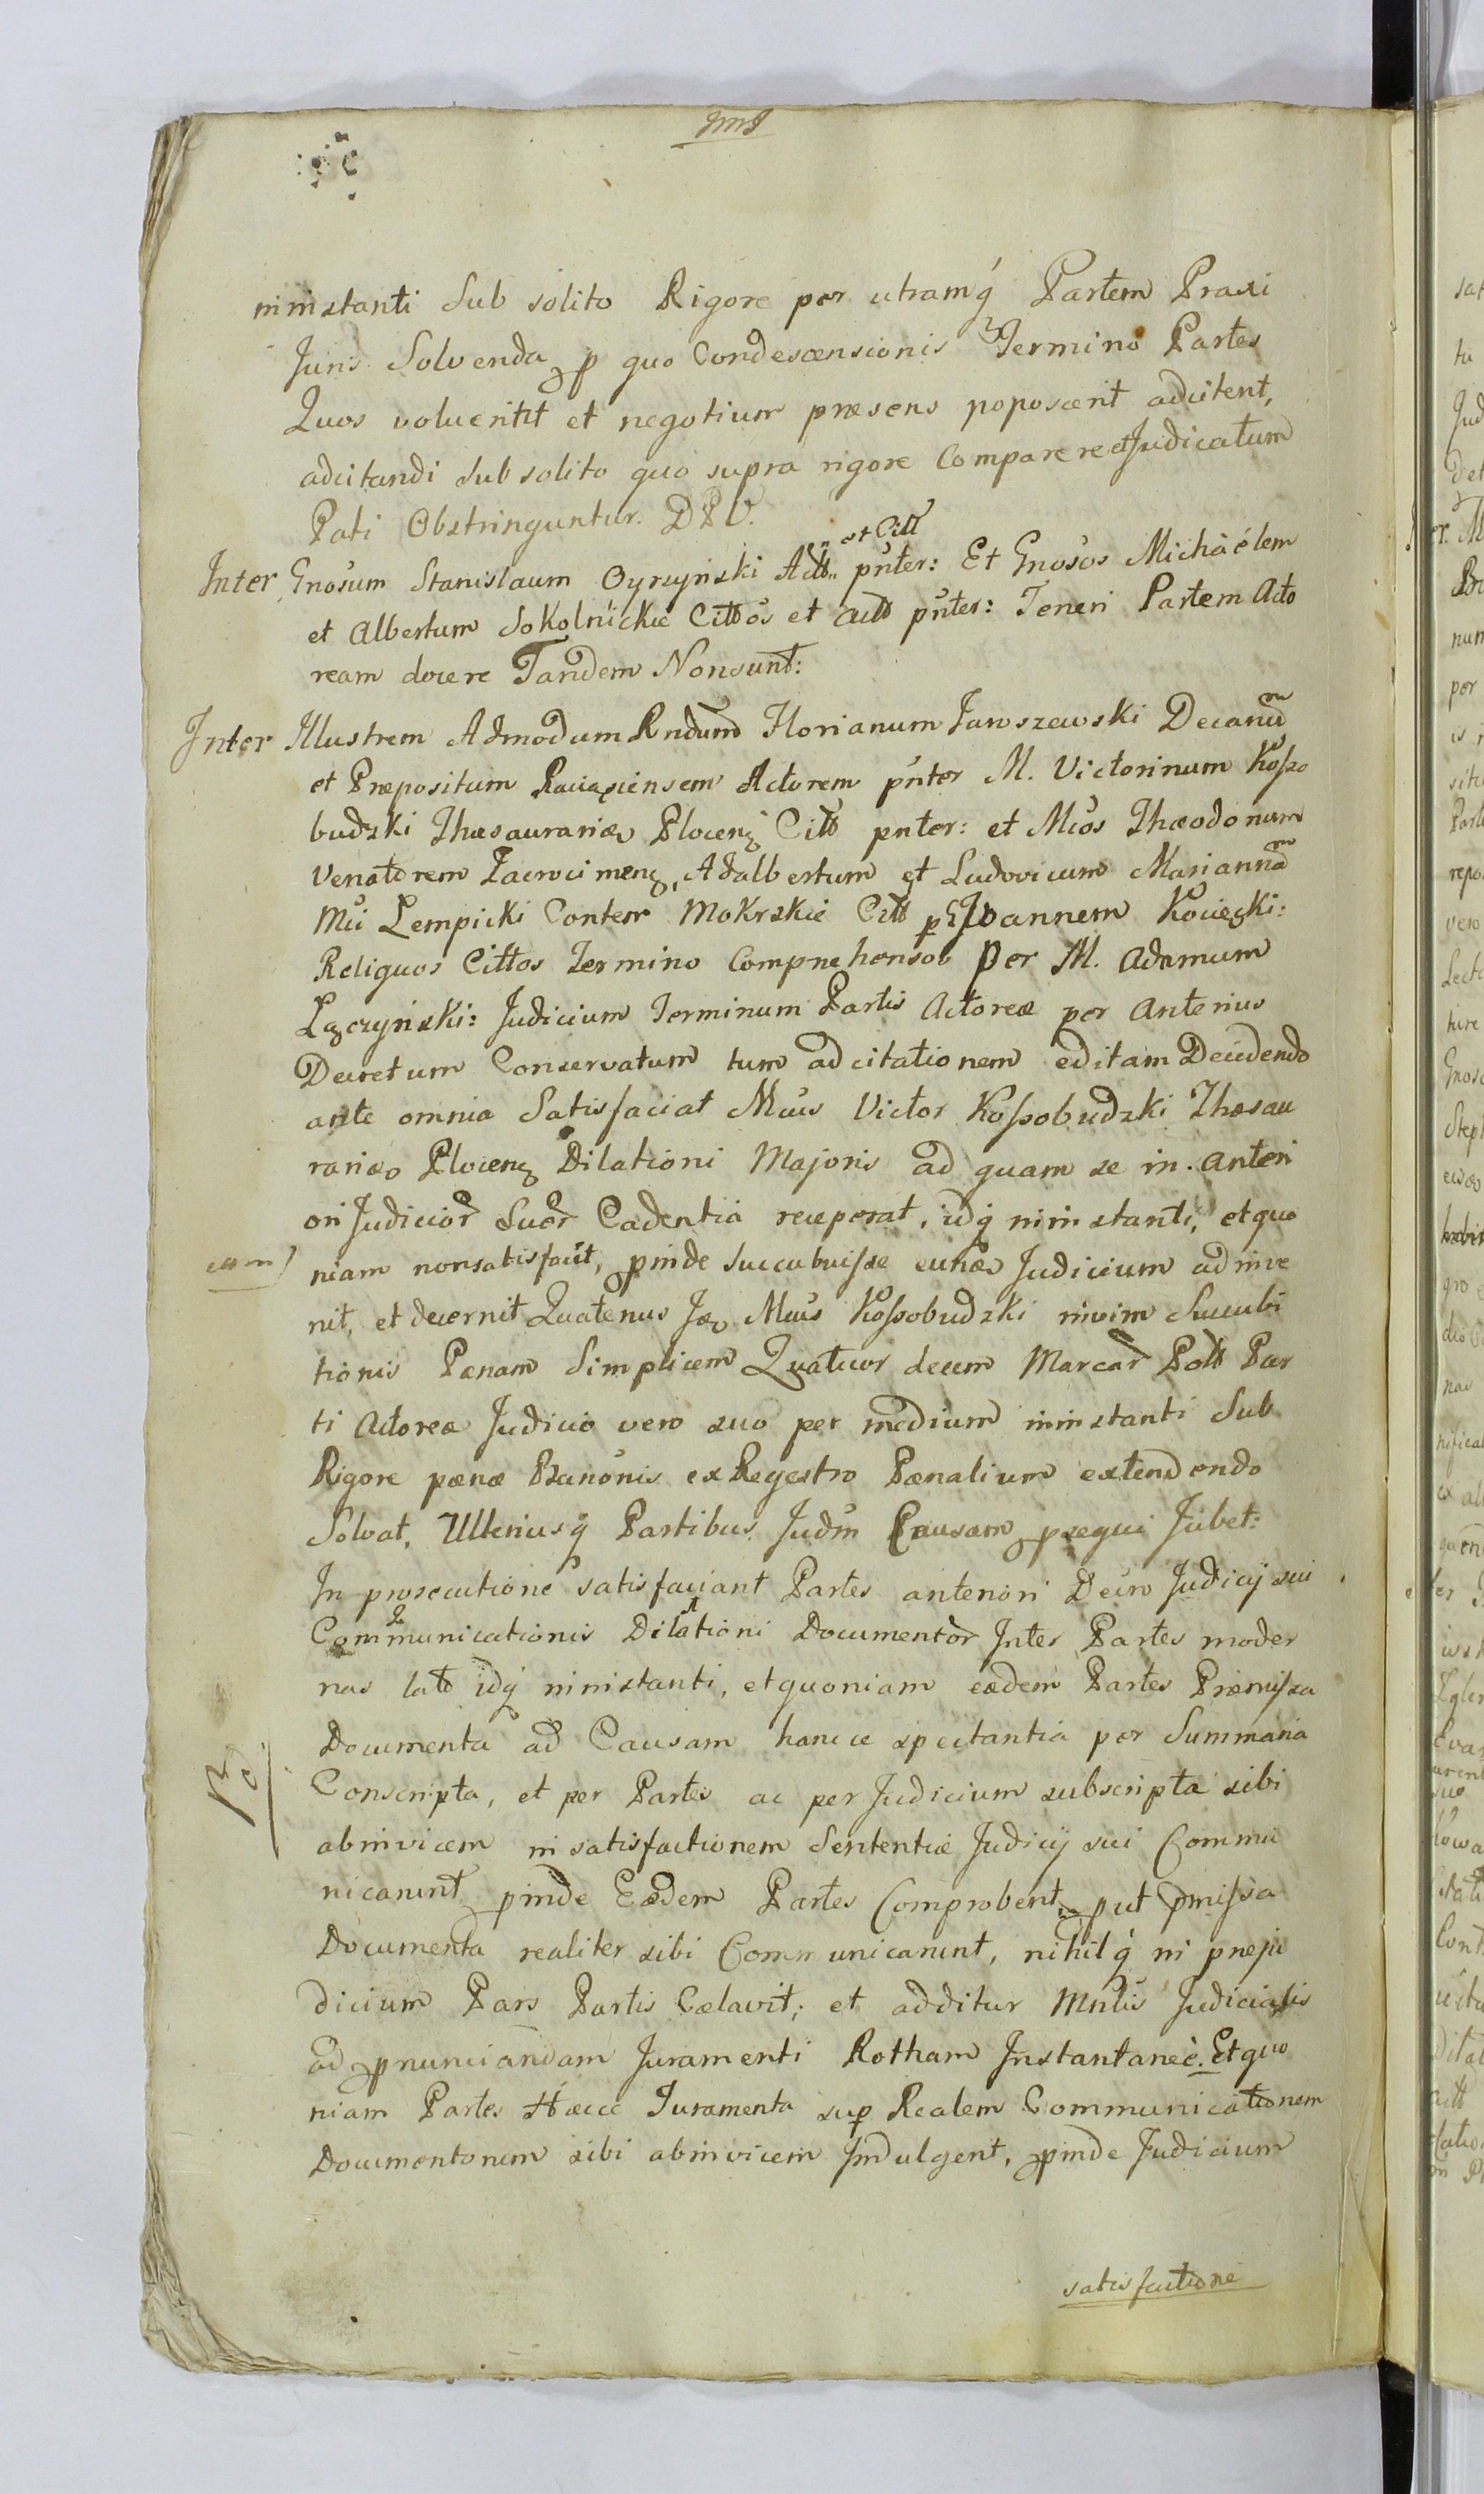 ninstanti Sub solito Rigore per utramq́ Partem Praxi
Juris Solvenda, p quo Condescensionis Termino Partes
Quos voluerint et negotium præsens poposcerit adcitent,
adcitandi sub solito quo supra rigore Comparere et Judicatum
Pati Obstringuntur. D P V.
et Citt
Inter Gnosum Stanislaum Oyrzynski Actt pnter: Et Gnosos Michaelem
et Albertum Sokolnickie Cittos et actt pnter: Teneri Partem Acto
ream docere Tandem Nonsunt:
Inter Illustrem Admodum Rndum Florianum Jaroszewski Decanu
et Præpositum Raciążiensem Actorem pnter M. Victorinum Kosso
budzki Thæsaurariæ Plocens Citt pnter: et Mcos Theodorum
Venatorem Zacrocimens, Adalbertum et Ludovicum Marianna
Mci Lempicki Contem Mokrskie Citt p Joannem Kocięcki:
Religuos Cittos Termino Comprehensos Per M. Adamum
Łączyński: Judicium Terminum Partis Actoreæ per Anterius
Decretum Conservatum tum ad citationem editam Decidendo
ante omnia Satisfaciat Mcus Victor Kossobudzki Thæsau
rariæ Plocens Dilationi Majoris ad quam se in anteri
ori Judicior Suor Cadentia receperat, idq ninstanti, et quo
niam nonsatisfacit, pinde succubuisse Judicium ad inve
nit, et decernit Quatenus Mcus Kossobudzki Succubi
tionis Pænam Simplicem Quatuor decem Marcar Poll Par
ti Actoreæ Judicio vero suo per medium ninstanti Sub
Rigore pænæ Banonis ex Regestro Pænalium extendendo
Solvat, Ulteriusq Partibus Judm Causam psequi Jubet:
In prosecutione satisfaciant Partes anteriori Decro Judicij sui
Communicationis Dilationi Documentor Inter Partes moder
nas latt idq ninstanti, et quoniam eædem Partes Præmissa
Documenta ad Causam hancce spectantia per Summaria
Conscripta, et per Partes ac per Judicium subscripta sibi
abinvicem in satisfactionem Sententiæ Judicij sui Commu
nicarunt pinde Eædem Partes Comprobent, put pmissa
Documenta realiter sibi Communicarunt, nihilq́ in preju
dicium Pars Partis Cælavit; et additur Mnlis Judicialis
ad pnunciandam Juramenti Rotham Instantaneè. Et quo
niam Partes Hæcce Juramenta sup Realem Communicationem
Documentorum sibi abinvicem Indulgent, pinde Judicium
satisfactione